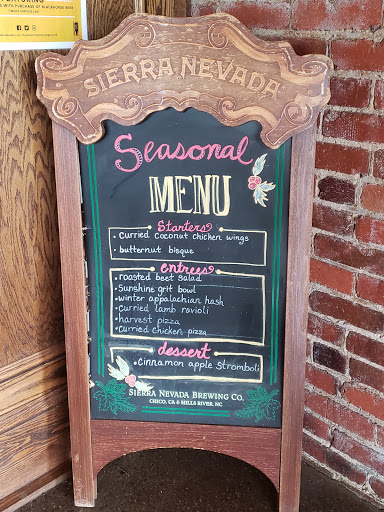 WITH PURCHASE OF BLACKHORSE BEER
SIERRA NEVADA
Seasonal
MENU
Starters
• Curried Coconut chicken wings
• butternut bisque
entrees
• roasted beet salad
• Sunshine grit bowl
• winter appalachian hash
• Curried lamb ravioli
• harvest pizza
• Curried chicken pizza
dessert
• Cinnamon apple Stromboli
SIERRA NEVADA BREWING CO.
CHICO, CA & MILLS RIVER, NC